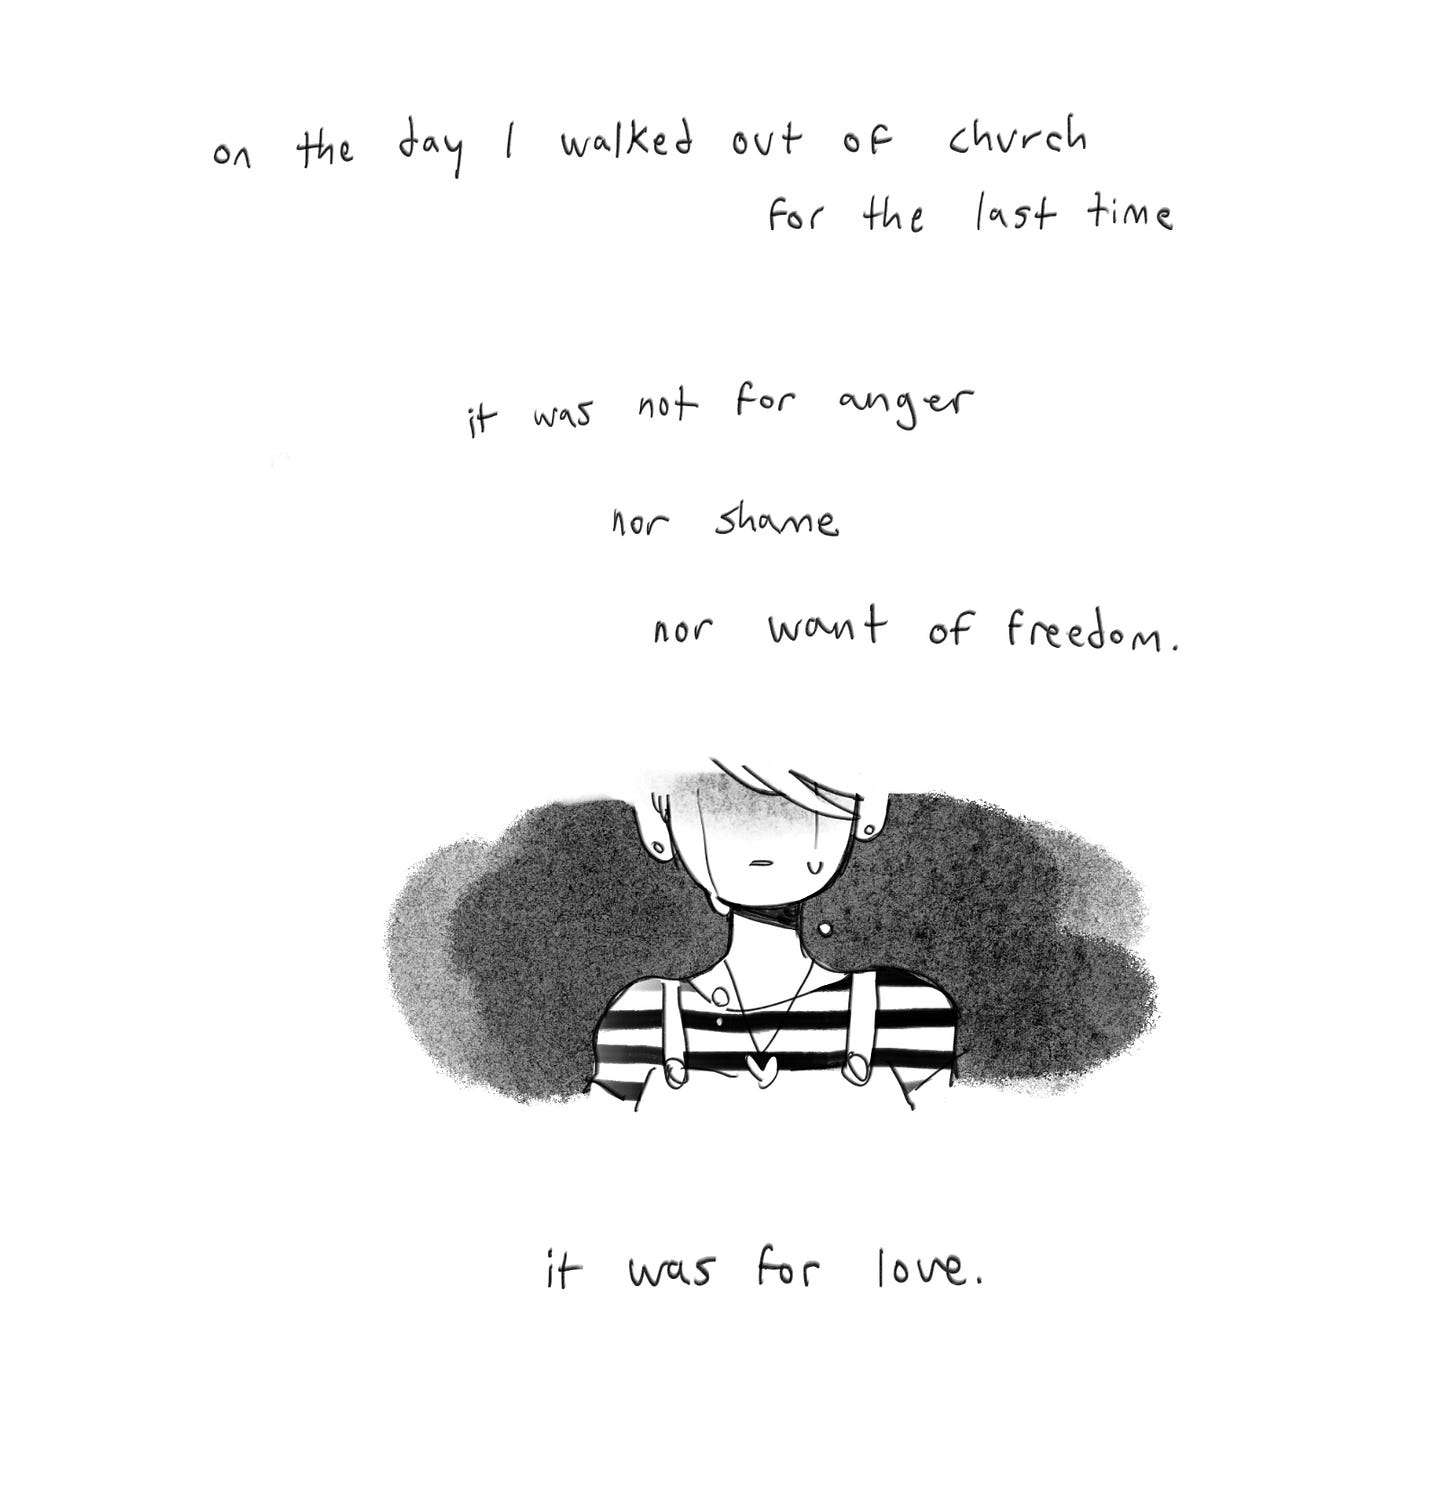 on the day I walked out of church
for the last time
it was not for anger
nor shame
nor want of freedom.
it was for love.